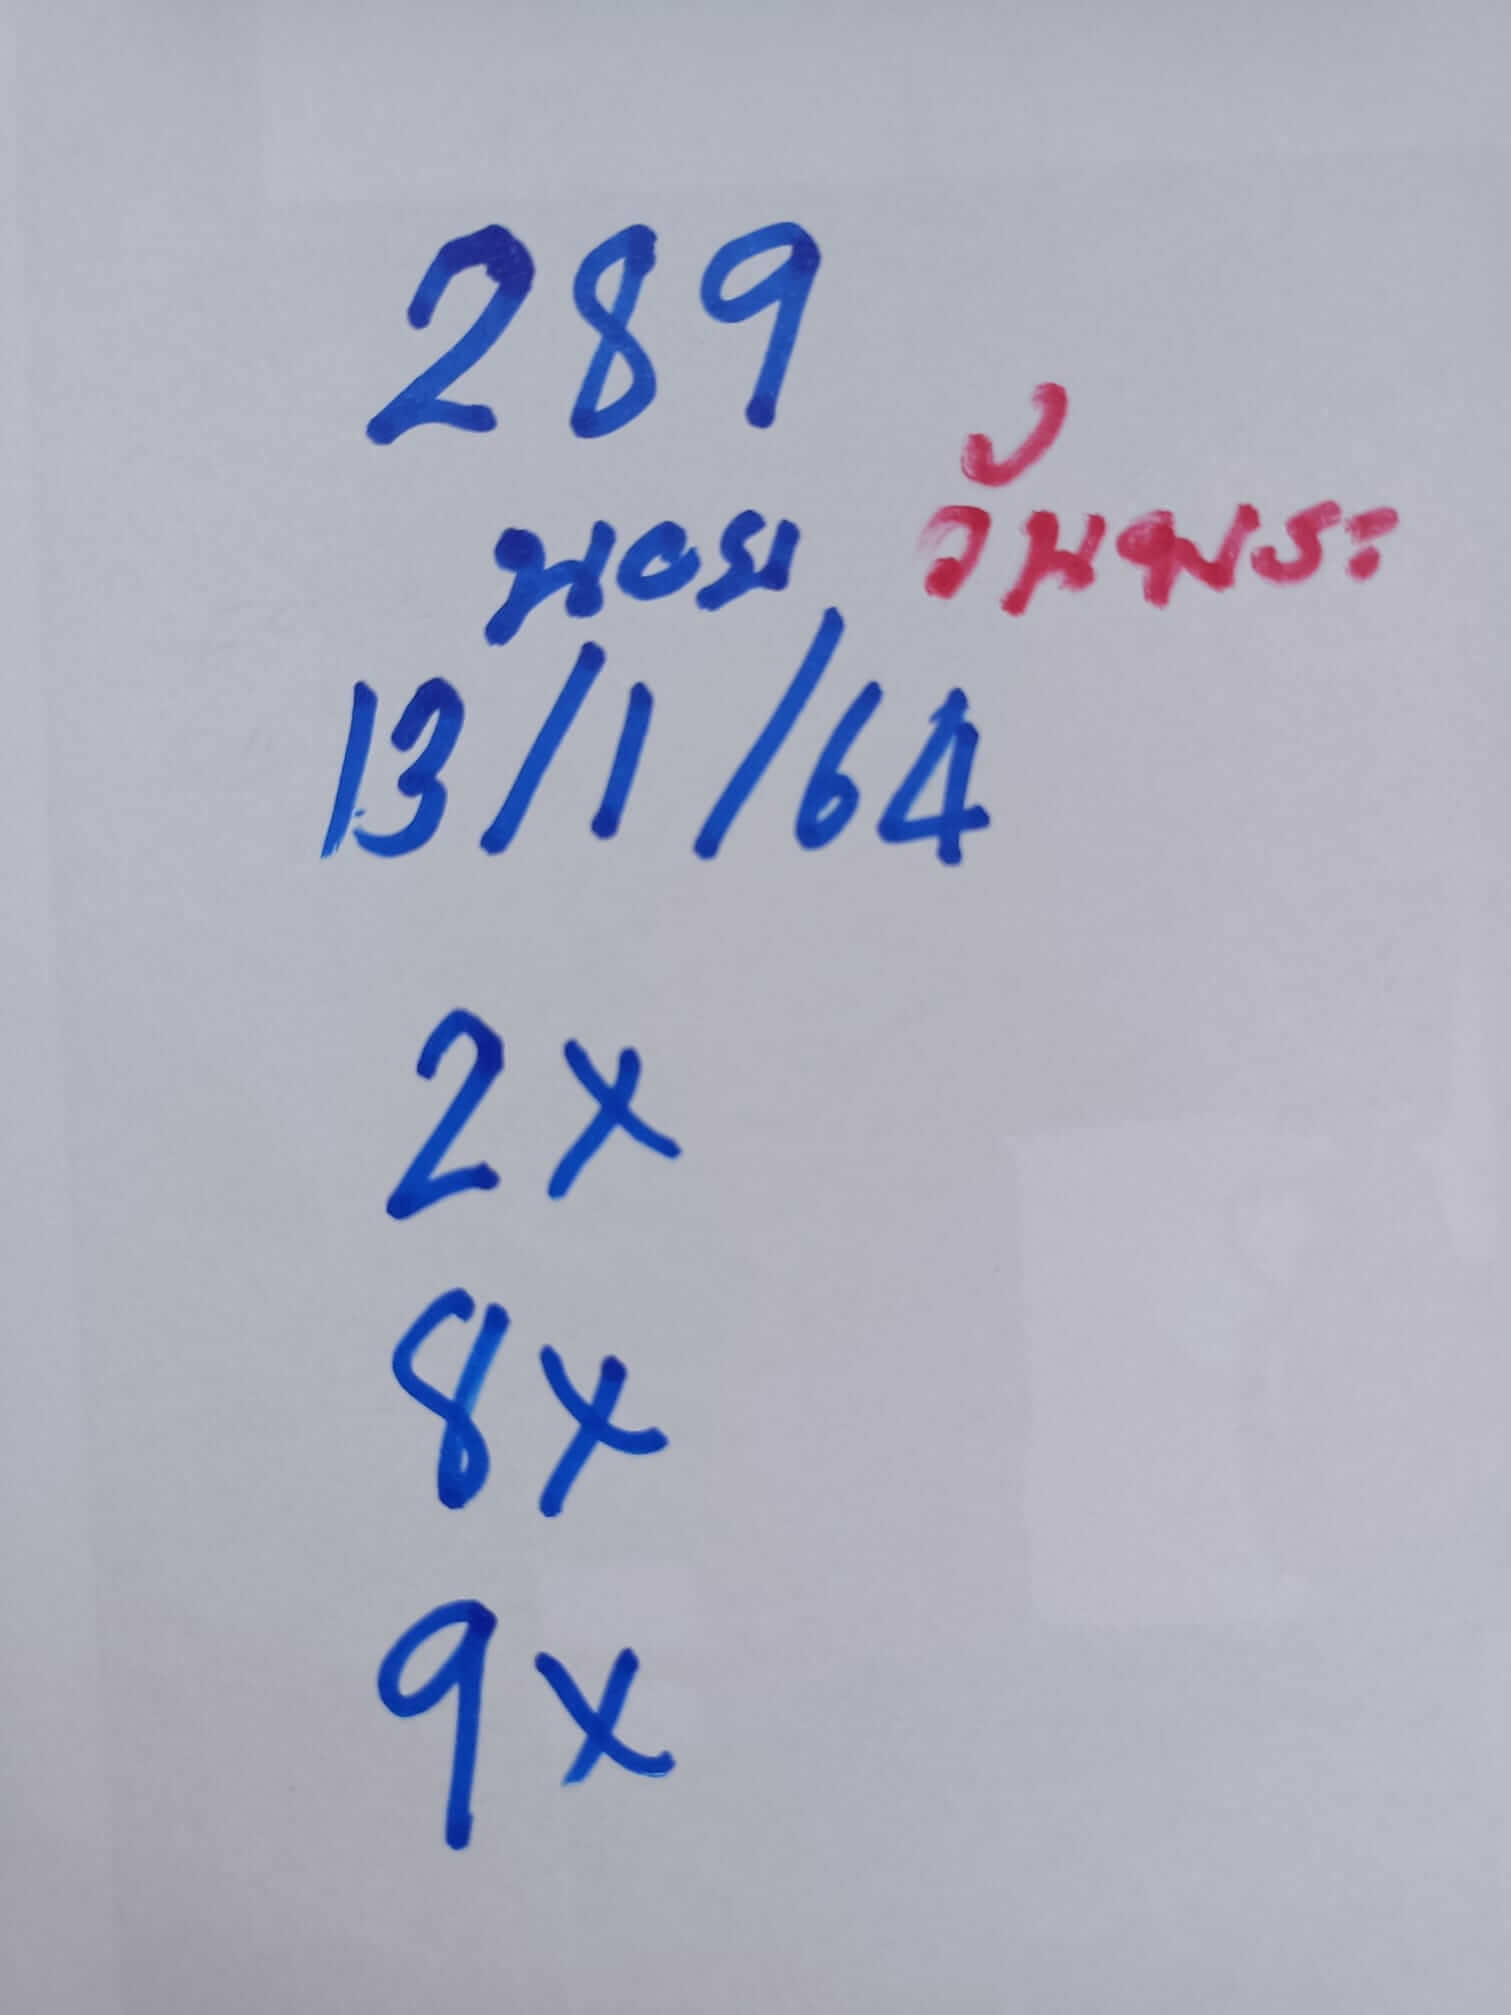 289
นอย วันพระ
13/1/64
2x
8x
9x